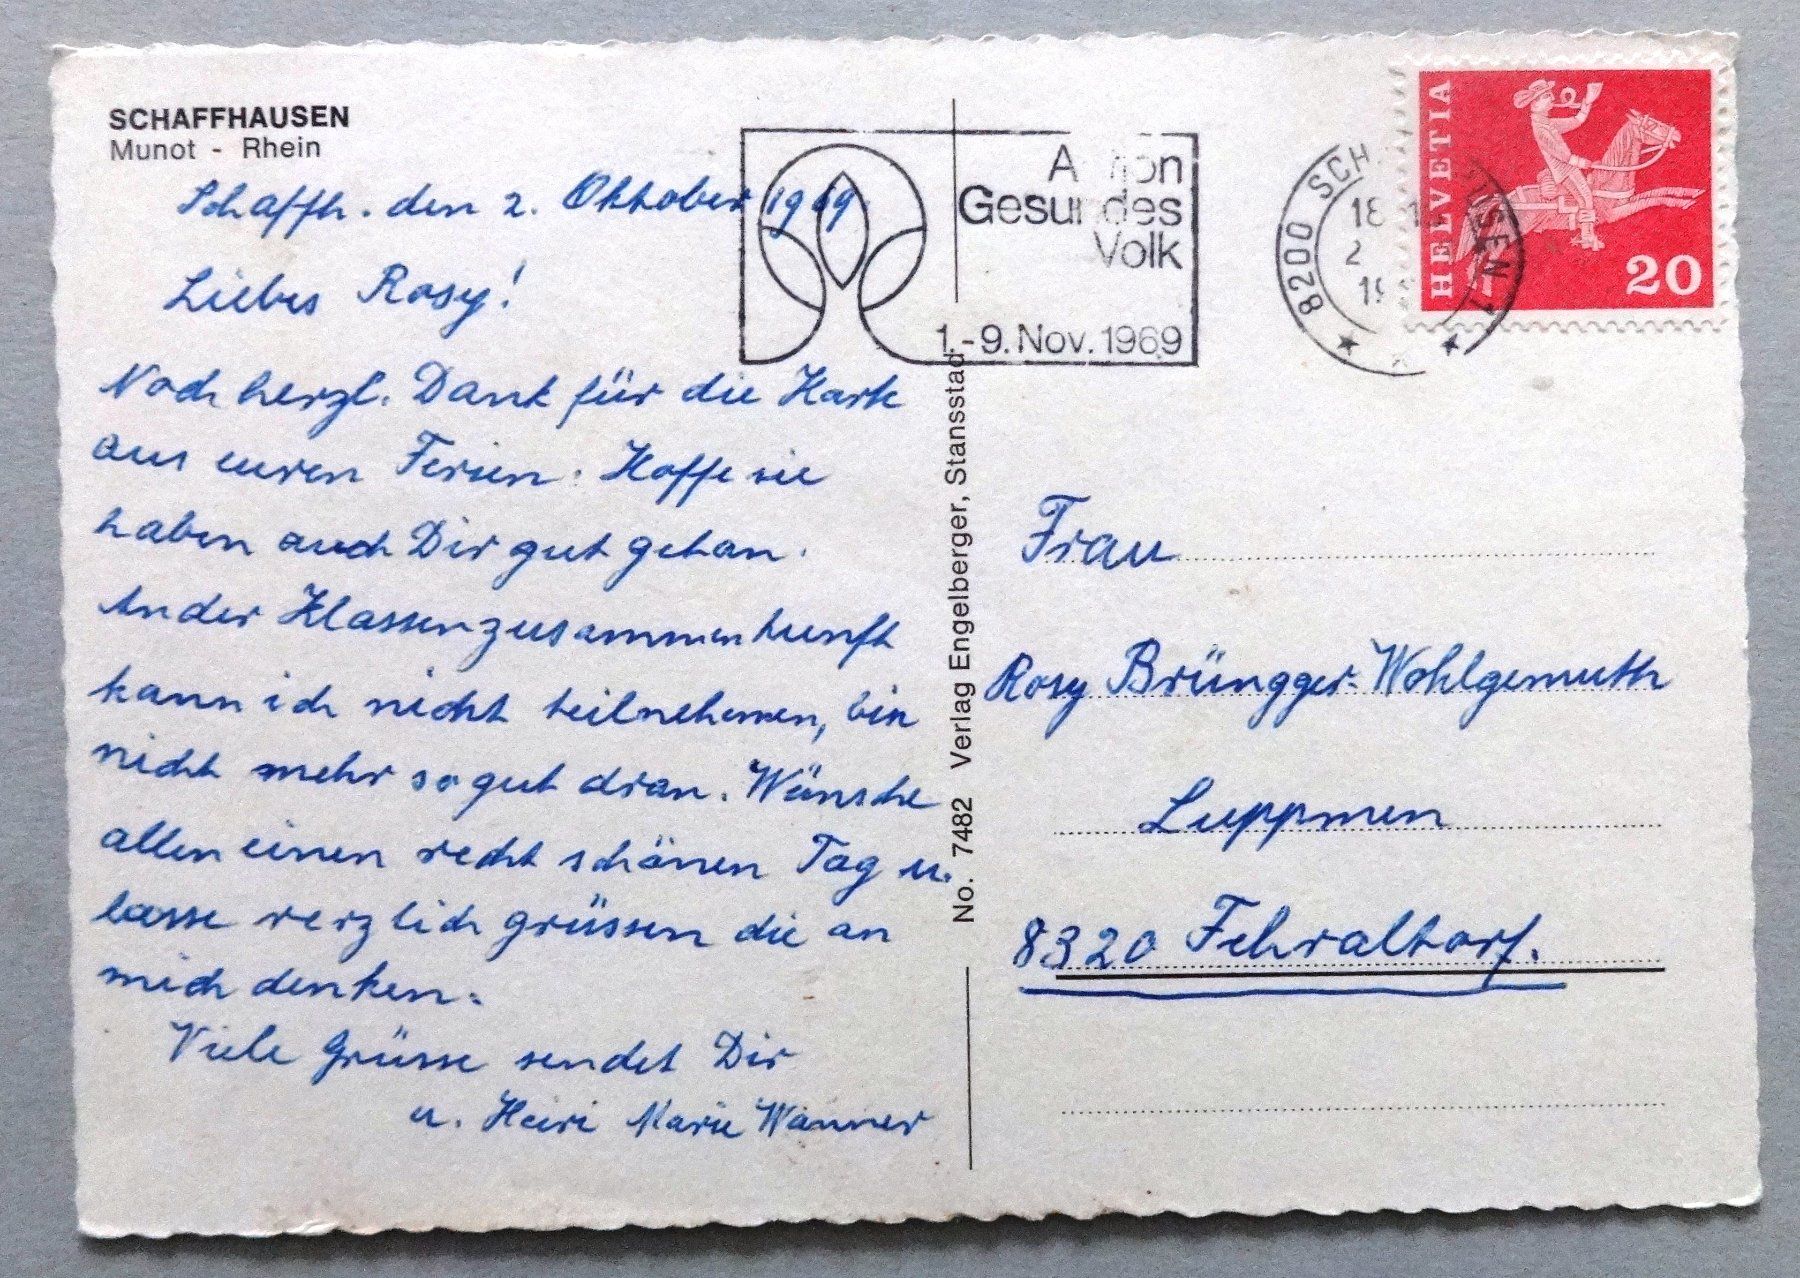 SCHAFFHAUSEN
Munot - Rhein
Schaffh. den 2. Oktober 1969.
Liebes Rosy!
Noch herzl. Dank für die Karte
aus euren Ferien. Hoffe sie
haben auch Dir gut getan.
An der Klassenzusammenkunft
kann ich nicht teilnehmen, bin
nicht mehr so gut dran. Wünsche
allen einen recht schönen Tag u.
lasse herzlich grüssen die an
mich denken.
Viele Grüsse sendet Dir
u. Heiri Marie Wanner
No. 7482 Verlag Engelberger, Stansstad.
Gesundes
Volk
1.-9. Nov. 1969
8200 SCHAFFHAUSEN 1
18
2
HELVETIA
20
Frau
Rosy Brüngger-Wohlgemuth
Luppmen
8320 Fehraltorf.